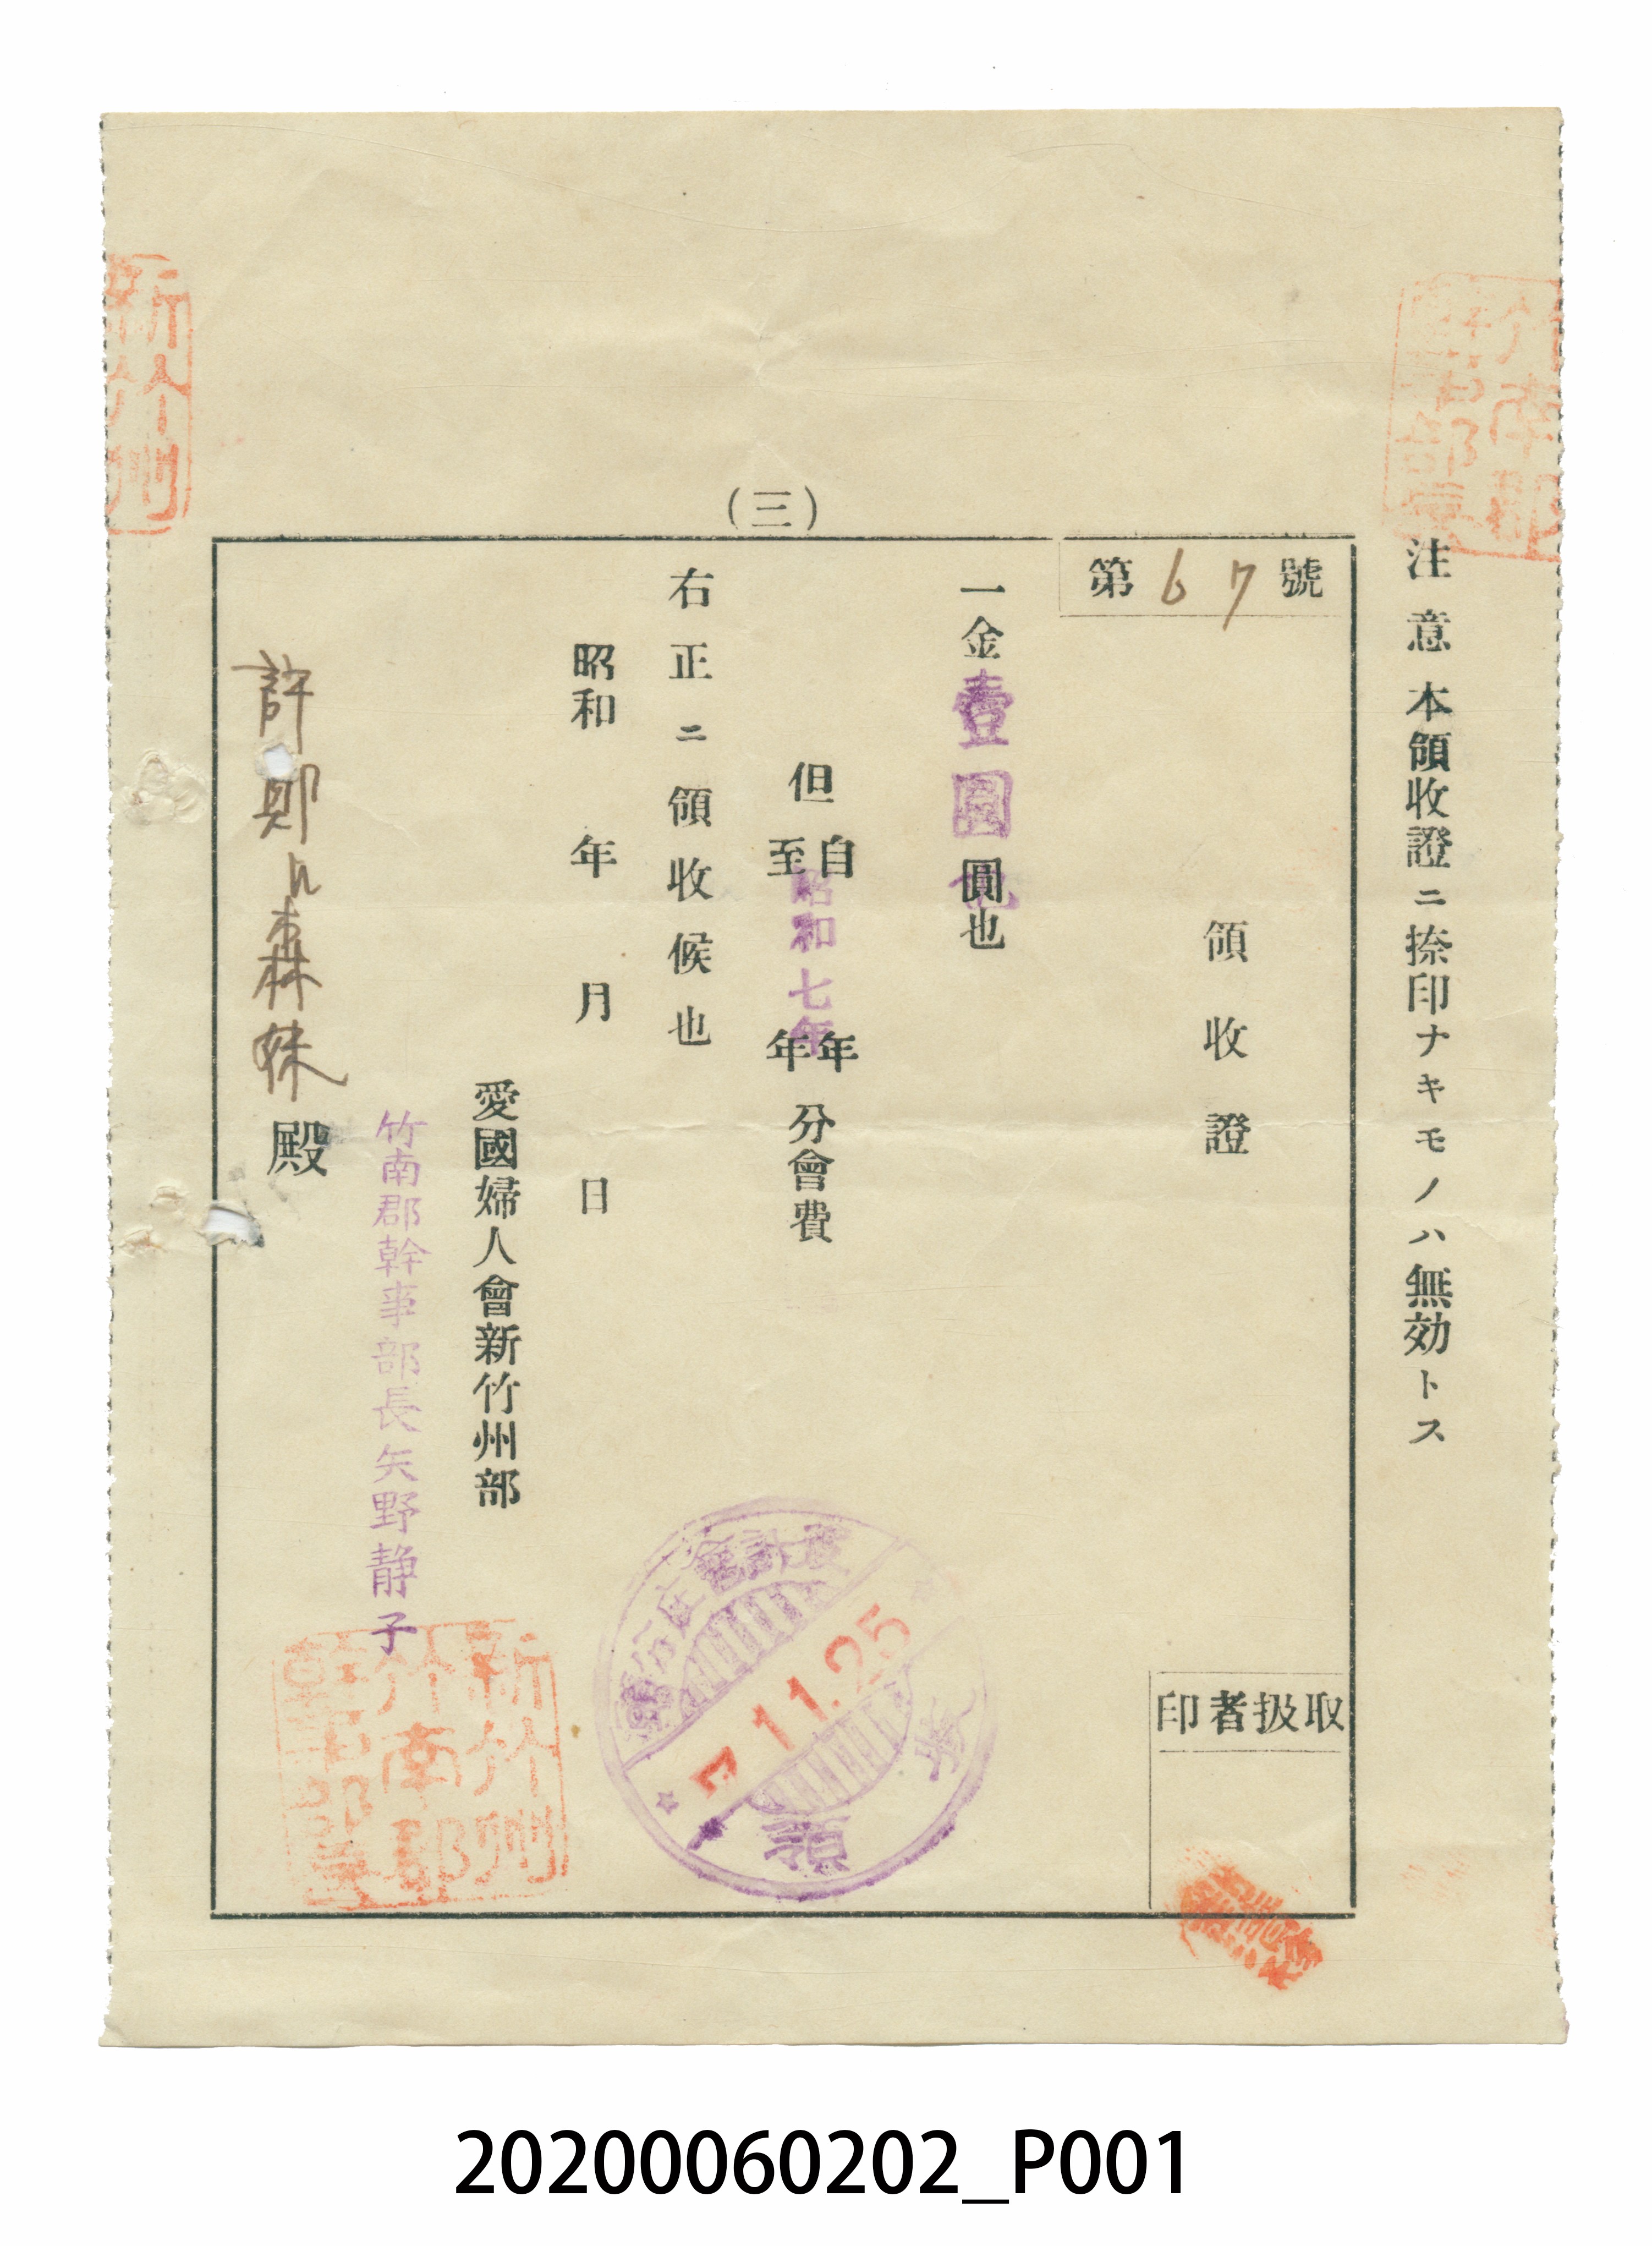 注意 本領收證ニ捺印ナキモノハ無効トス
竹南郡
新竹州
(三)
第67號
領收證
一金壹圓也圓也
但 自 年
至 年
昭和七年
分會費
右正ニ領收候也
昭和 年 月 日
愛國婦人會新竹州部
竹南郡幹事部長矢野静子
殿
新竹州
竹南郡
幹事部長
領收
7.11.25
取扱者印
20200060202_P001